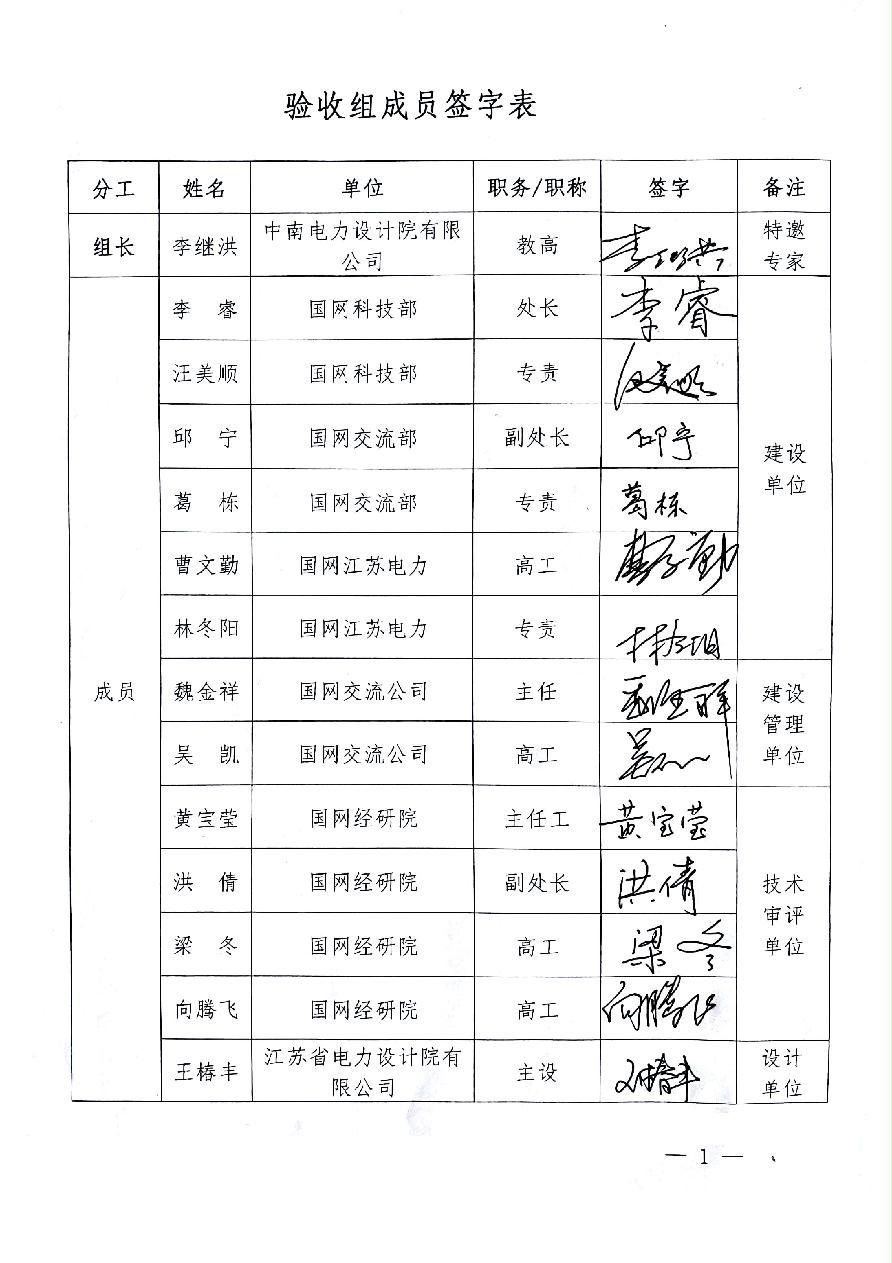 验收组成员签字表
分工 姓名 单位 职务/职称 签字 备注
组长 李继洪 中南电力设计院有限公司 教高 李继洪 特邀专家
成员
李 睿 国网科技部 处长 李睿
汪美顺 国网科技部 专责 汪美顺
邱 宁 国网交流部 副处长 邱宁
葛 栋 国网交流部 专责 葛栋
曹文勤 国网江苏电力 高工 曹文勤
林冬阳 国网江苏电力 专责 林冬阳
建设单位
魏金祥 国网交流公司 主任 魏金祥
吴 凯 国网交流公司 高工 吴凯
建设管理单位
黄宝莹 国网经研院 主任工 黄宝莹
洪 倩 国网经研院 副处长 洪倩
梁 冬 国网经研院 高工 梁冬
向腾飞 国网经研院 高工 向腾飞
技术审评单位
王椿丰 江苏省电力设计院有限公司 主设 王椿丰 设计单位
— 1 —